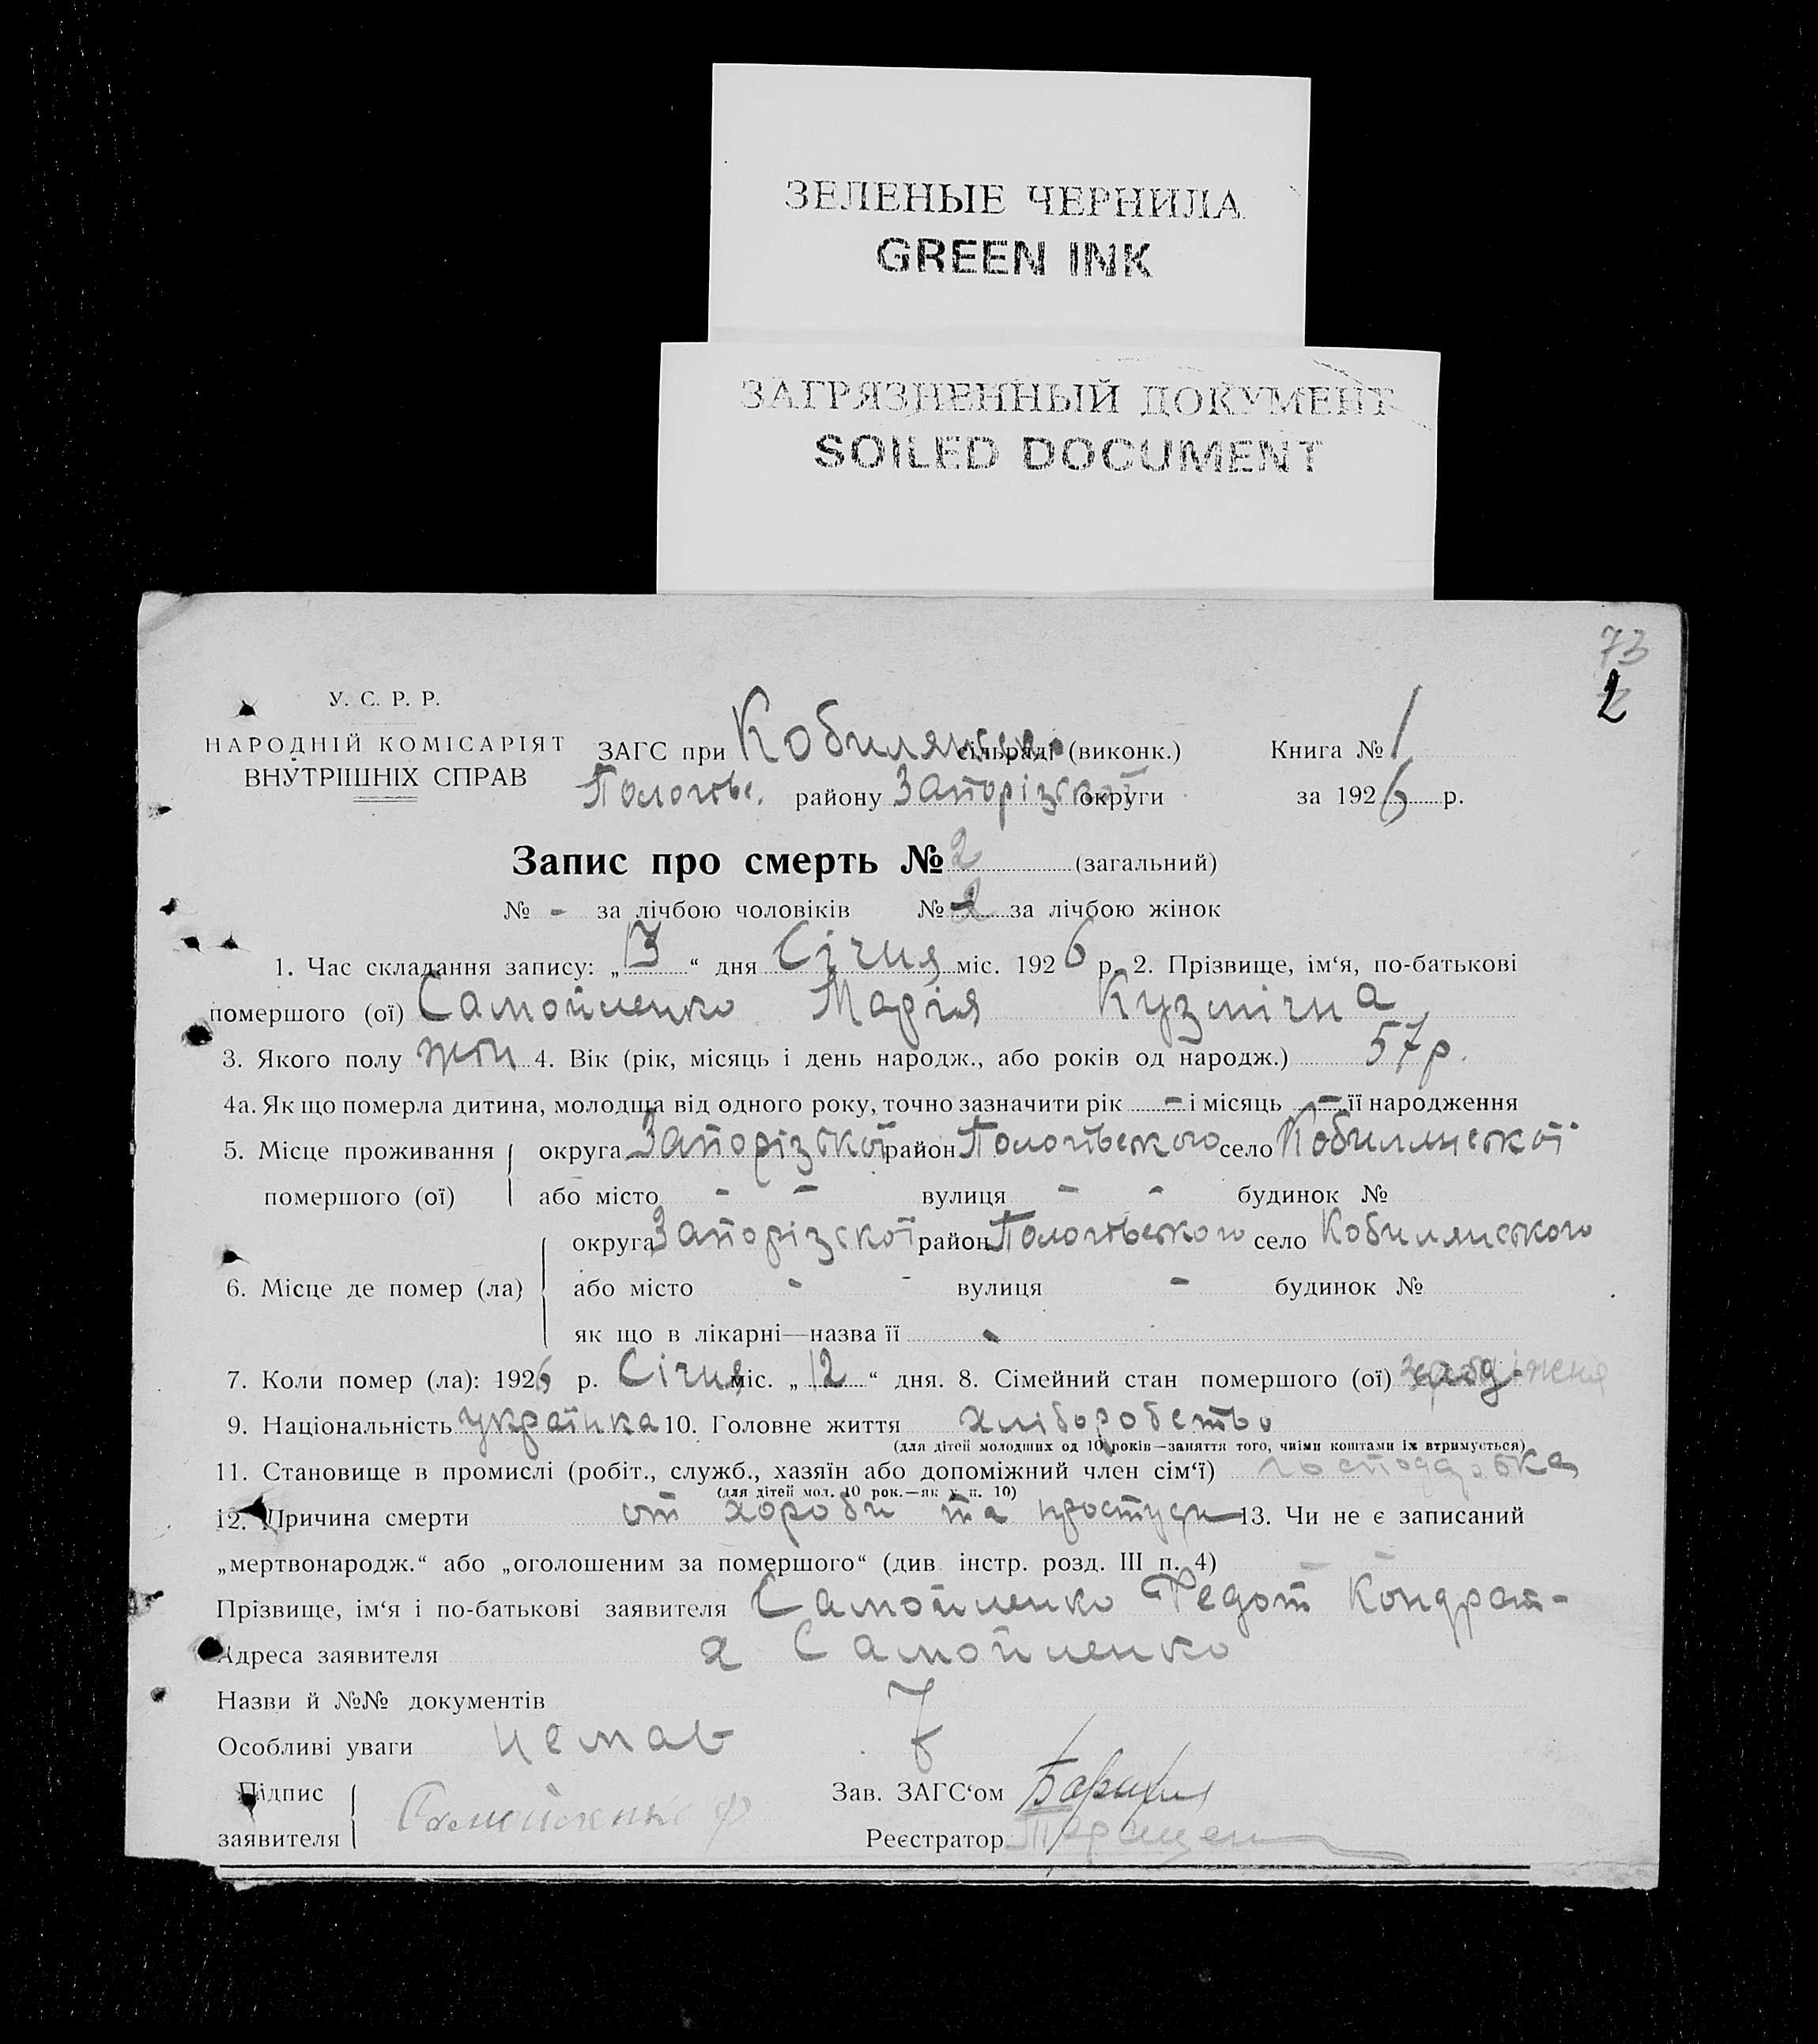 ЗЕЛЕНЫЕ ЧЕРНИЛА
GREEN INK
ЗАГРЯЗНЕННЫЙ ДОКУМЕНТ
SOILED DOCUMENT
73
2
У. С. Р. Р.
НАРОДНІЙ КОМІСАРІЯТ
ВНУТРІШНІХ СПРАВ
ЗАГС при Кобилянськ. сільраді (виконк.) Книга № 1
Пологівс. району Запорізської округи за 1926 р.
Запис про смерть № 2 (загальний)
№ - за лічбою чоловіків № 2 за лічбою жінок
1. Час складання запису: „13“ дня Січня міс. 1926 р. 2. Прізвище, ім‘я, по-батькові
помершого (ої) Самойленко Марія Кузмічна
3. Якого полу жін 4. Вік (рік, місяць і день народж., або років од народж.) 57 р.
4а. Як що померла дитина, молодша від одного року, точно зазначити рік - і місяць - її народження
5. Місце проживання округа Запорізської район Пологівського село Кобилянської
помершого (ої) або місто - - вулиця - - будинок №
округа Запорізської район Пологівського село Кобилянського
6. Місце де помер (ла) або місто - - вулиця - будинок №
як що в лікарні—назва її -
7. Коли помер (ла): 1926 р. Січня міс. „12“ дня. 8. Сімейний стан помершого (ої)
9. Національність українка 10. Головне життя хліборобство
(для дітей молодших од 10 років—заняття того, чиїми коштами їх втримується)
11. Становище в промислі (робіт., служб., хазяїн або допоміжний член сім‘ї)
(для дітей мол. 10 рок.—як у п. 10)
12. Причина смерти от хороби та простуди 13. Чи не є записаний
„мертвонародж.“ або „оголошеним за помершого“ (див. інстр. розд. III п. 4) - -
Прізвище, ім‘я і по-батькові заявителя Самойленко Федот Кондрат-
Адреса заявителя х Самойленко
Назви й №№ документів
Особливі уваги немає
Підпис Зав. ЗАГС‘ом
заявителя Самойленко Ф Реєстратор